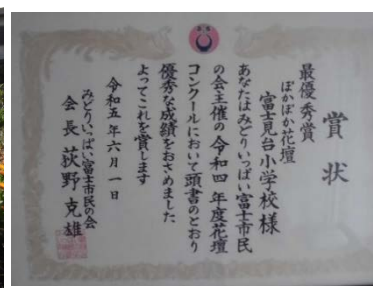 賞状
最優秀賞
ぽかぽか花壇
富士見台小学校様
あなたはみどりいっぱい富士市民
の会主催の令和四年度花壇
コンクールにおいて頭書のとおり
優秀な成績をおさめました
よってこれを賞します
令和五年六月一日
みどりいっぱい富士市民の会
会長 荻野克雄